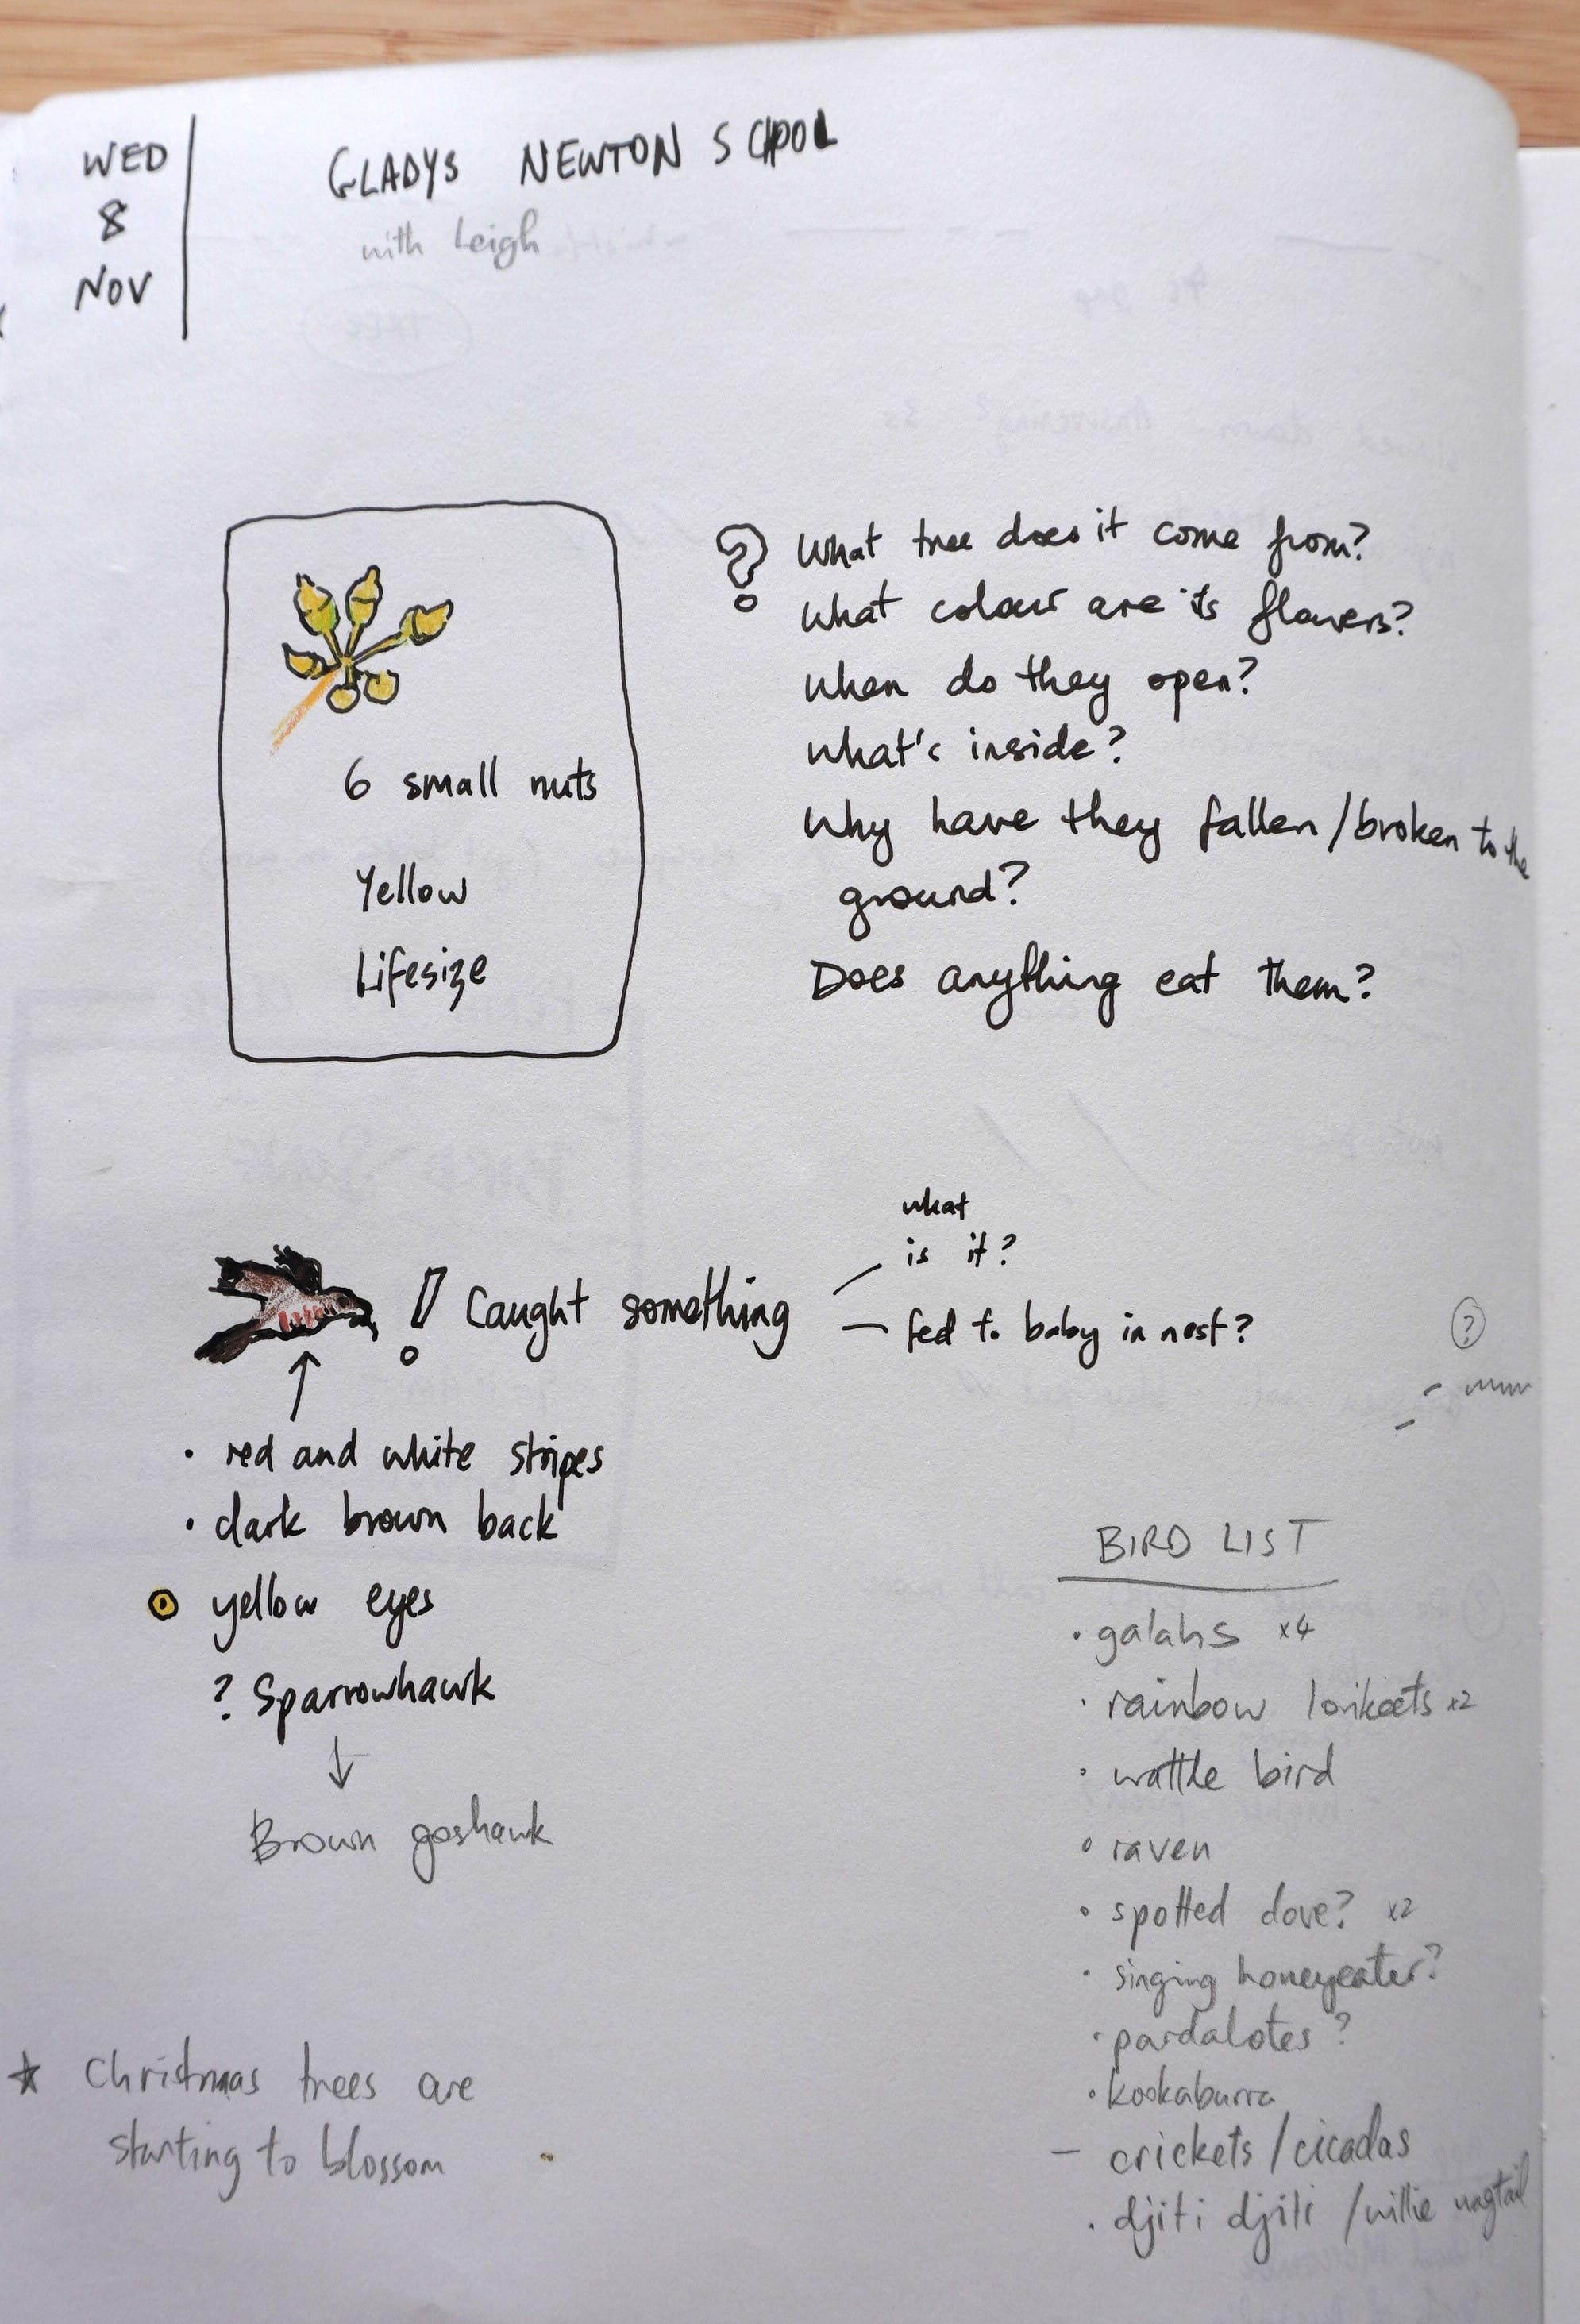 WED
8
NOV
GLADYS NEWTON SCHOOL
with Leigh
6 small nuts
Yellow
Lifesize
? What tree does it come from?
What colour are its flowers?
When do they open?
What's inside?
Why have they fallen/broken to the
ground?
Does anything eat them?
! Caught something
what
is it?
fed to baby in nest?
?
• red and white stripes
• dark brown back
yellow eyes
? Sparrowhawk
↓
Brown goshawk
* Christmas trees are
starting to blossom
BIRD LIST
• galahs x4
• rainbow lorikeets x2
• wattle bird
• raven
• spotted dove? x2
• singing honeyeater?
• pardalotes?
• kookaburra
– crickets/cicadas
• djiti djiti /willie wagtail